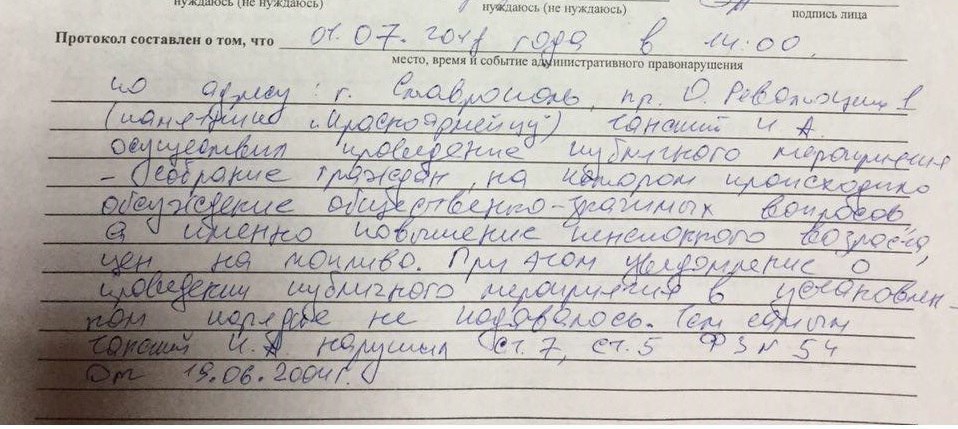 нуждаюсь (не нуждаюсь) нуждаюсь (не нуждаюсь) подпись лица
Протокол составлен о том, что 01.07.2018 года в 14:00,
место, время и событие административного правонарушения
по адресу: г. Ставрополь, пр. О. Революции 1
(памятник „Красноармейцу") И. А.
осуществил проведение публичного мероприятия
– собрание граждан, на котором происходило
обсуждение общественно-значимых вопросов
а именно повышение пенсионного возраста,
цен на топливо. При этом уведомление о
проведении публичного мероприятия в установлен-
ном порядке не подавалось. Тем самым
И. А нарушил ст. 7, ст. 5 ФЗ № 54
От 19.06.2004г.